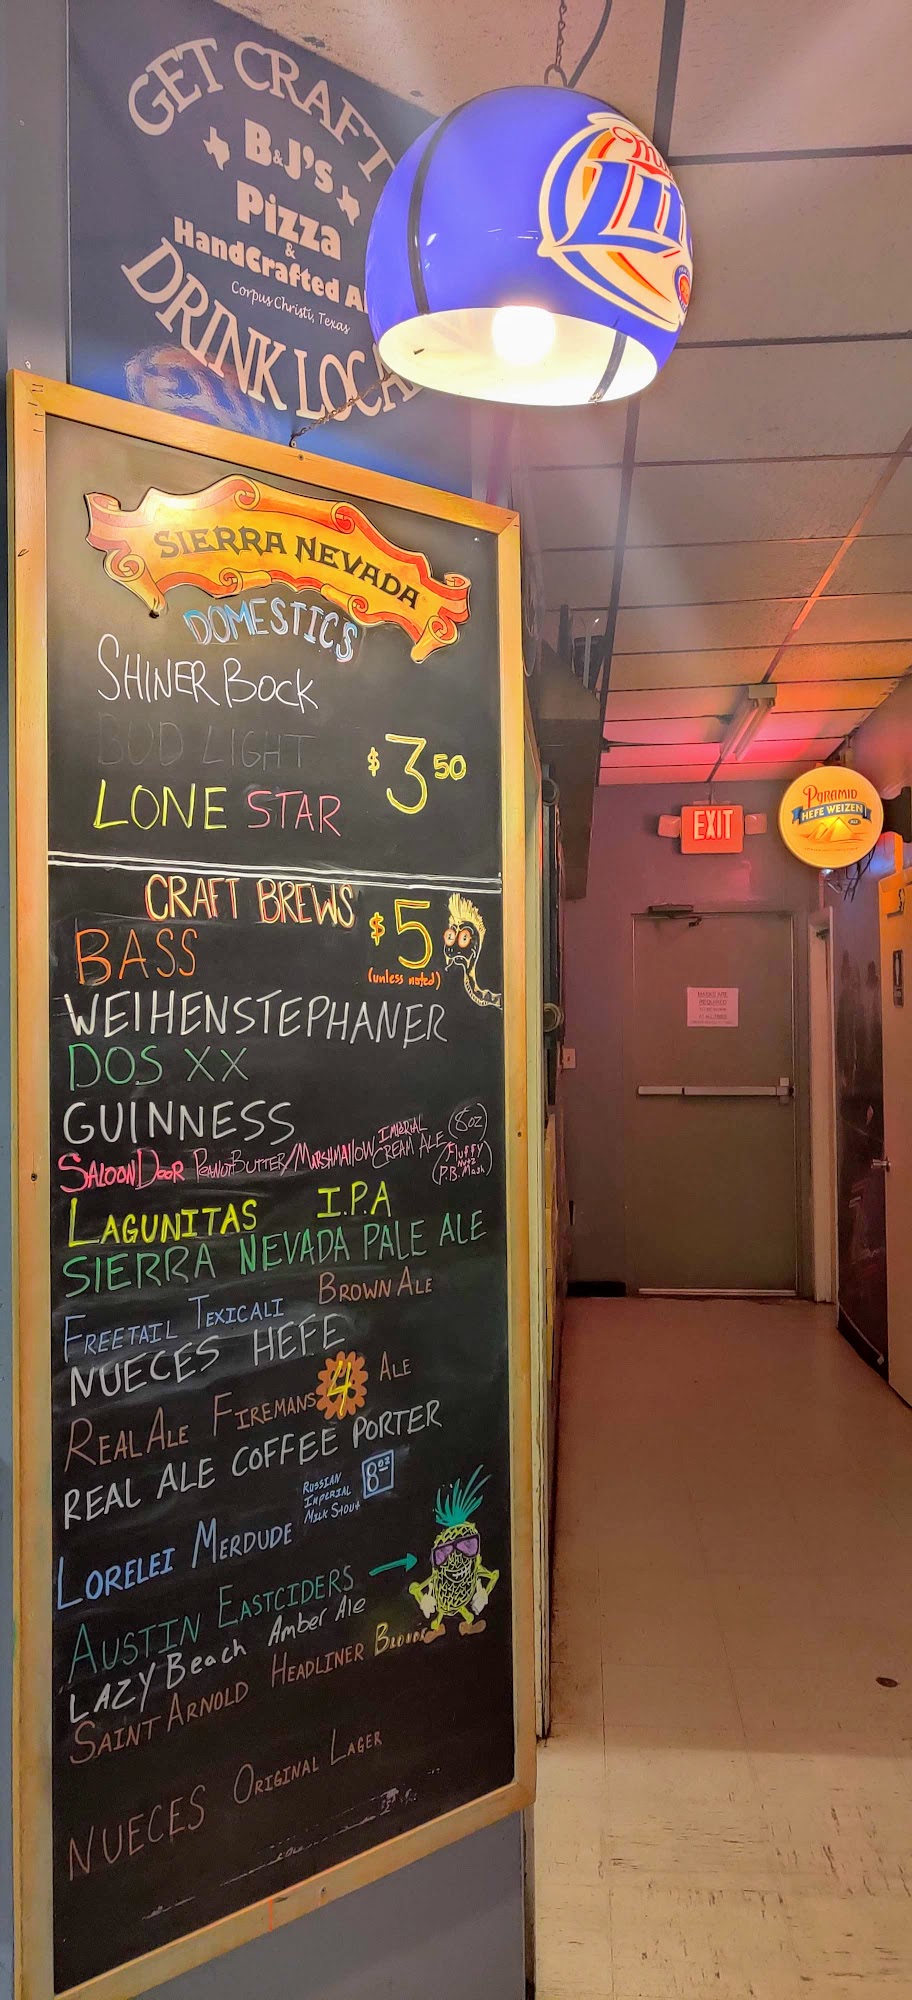 GET CRAFT
B&J's
Pizza
&
HandCrafted
Corpus Christi, Texas
DRINK LOCAL
Lite
SIERRA NEVADA
DOMESTICS
SHINER BOCK
BUD LIGHT
$3 50
LONE STAR
CRAFT BREWS
$5
(unless noted)
BASS
WEIHENSTEPHANER
DOS XX
GUINNESS
SALOON DOOR PEANUT BUTTER/MARSHMALLOW IMPERIAL CREAM ALE (8oz)
(Fluffy Nutz P.B. Mash)
LAGUNITAS I.P.A
SIERRA NEVADA PALE ALE
FREETAIL TEXICALI BROWN ALE
NUECES HEFE
REAL ALE FIREMANS 4 ALE
REAL ALE COFFEE PORTER
LORELEI MERDUDE RUSSIAN IMPERIAL MILK STOUT 8oz
AUSTIN EASTCIDERS
LAZY Beach Amber Ale
SAINT ARNOLD HEADLINER BLONDE
NUECES ORIGINAL LAGER
EXIT
PYRAMID
HEFE WEIZEN
ALE
MASKS ARE
REQUIRED